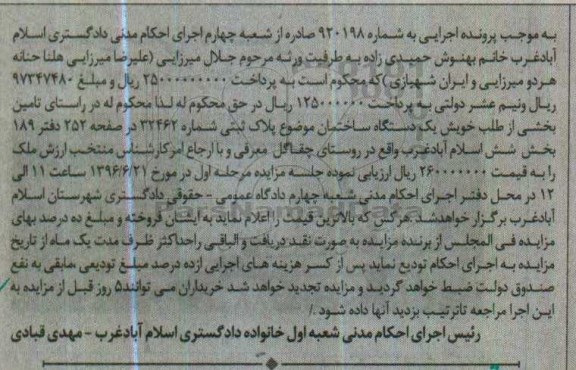 به موجب پرونده اجرایی به شماره ۹۲۰۱۹۸ صادره از شعبه چهارم اجرای احکام مدنی دادگستری اسلام
آبادغرب خانم بهنوش حمیدی زاده به طرفیت ورثه مرحوم جلال میرزایی (علیرضا میرزایی هلنا حنانه
هر دو میرزایی و ایران شهبازی )که محکوم است به پرداخت ۲۵۰۰۰۰۰۰۰۰ ریال و مبلغ ۹۷۳۴۷۴۸۰
ریال ونیم عشر دولتی به پرداخت ۱۲۵۰۰۰۰۰۰ ریال در حق محکوم له لذا محکوم له در راستای تامین
بخشی از طلب خویش یک دستگاه ساختمان موضوع پلاک ثبتی شماره ۳۲۴۶۲ در صفحه ۲۵۲ دفتر ۱۸۹
بخش شش اسلام آبادغرب واقع در روستای چقاگل معرفی و با ارجاع امر کارشناس منتخب ارزش ملک
را به قیمت ۲۶۰۰۰۰۰۰۰ ریال ارزیابی نموده جلسه مزایده مرحله اول در مورخ ۱۳۹۶/۶/۲۱ ساعت ۱۱ الی
۱۲ در محل دفتر اجرای احکام مدنی شعبه چهارم دادگاه عمومی - حقوقی دادگستری شهرستان اسلام
آبادغرب برگزار خواهدشد .هرکس که بالاترین قیمت را اعلام نماید به ایشان فروخته و مبلغ ده درصد بهای
مزایده فی المجلس از برنده مزایده به صورت نقد دریافت و الباقی راحداکثر ظرف مدت یک ماه از تاریخ
مزایده به اجرای احکام تودیع نماید پس از کسر هزینه های اجرایی ازده درصد مبلغ تودیعی ،مابقی به نفع
صندوق دولت ضبط خواهد گردید و مزایده تجدید خواهد شد خریداران می توانند۵ روز قبل از مزایده به
این اجرا مراجعه تاترتیب بزدید آنها داده شود ./
رئیس اجرای احکام مدنی شعبه اول خانواده دادگستری اسلام آبادغرب - مهدی قبادی